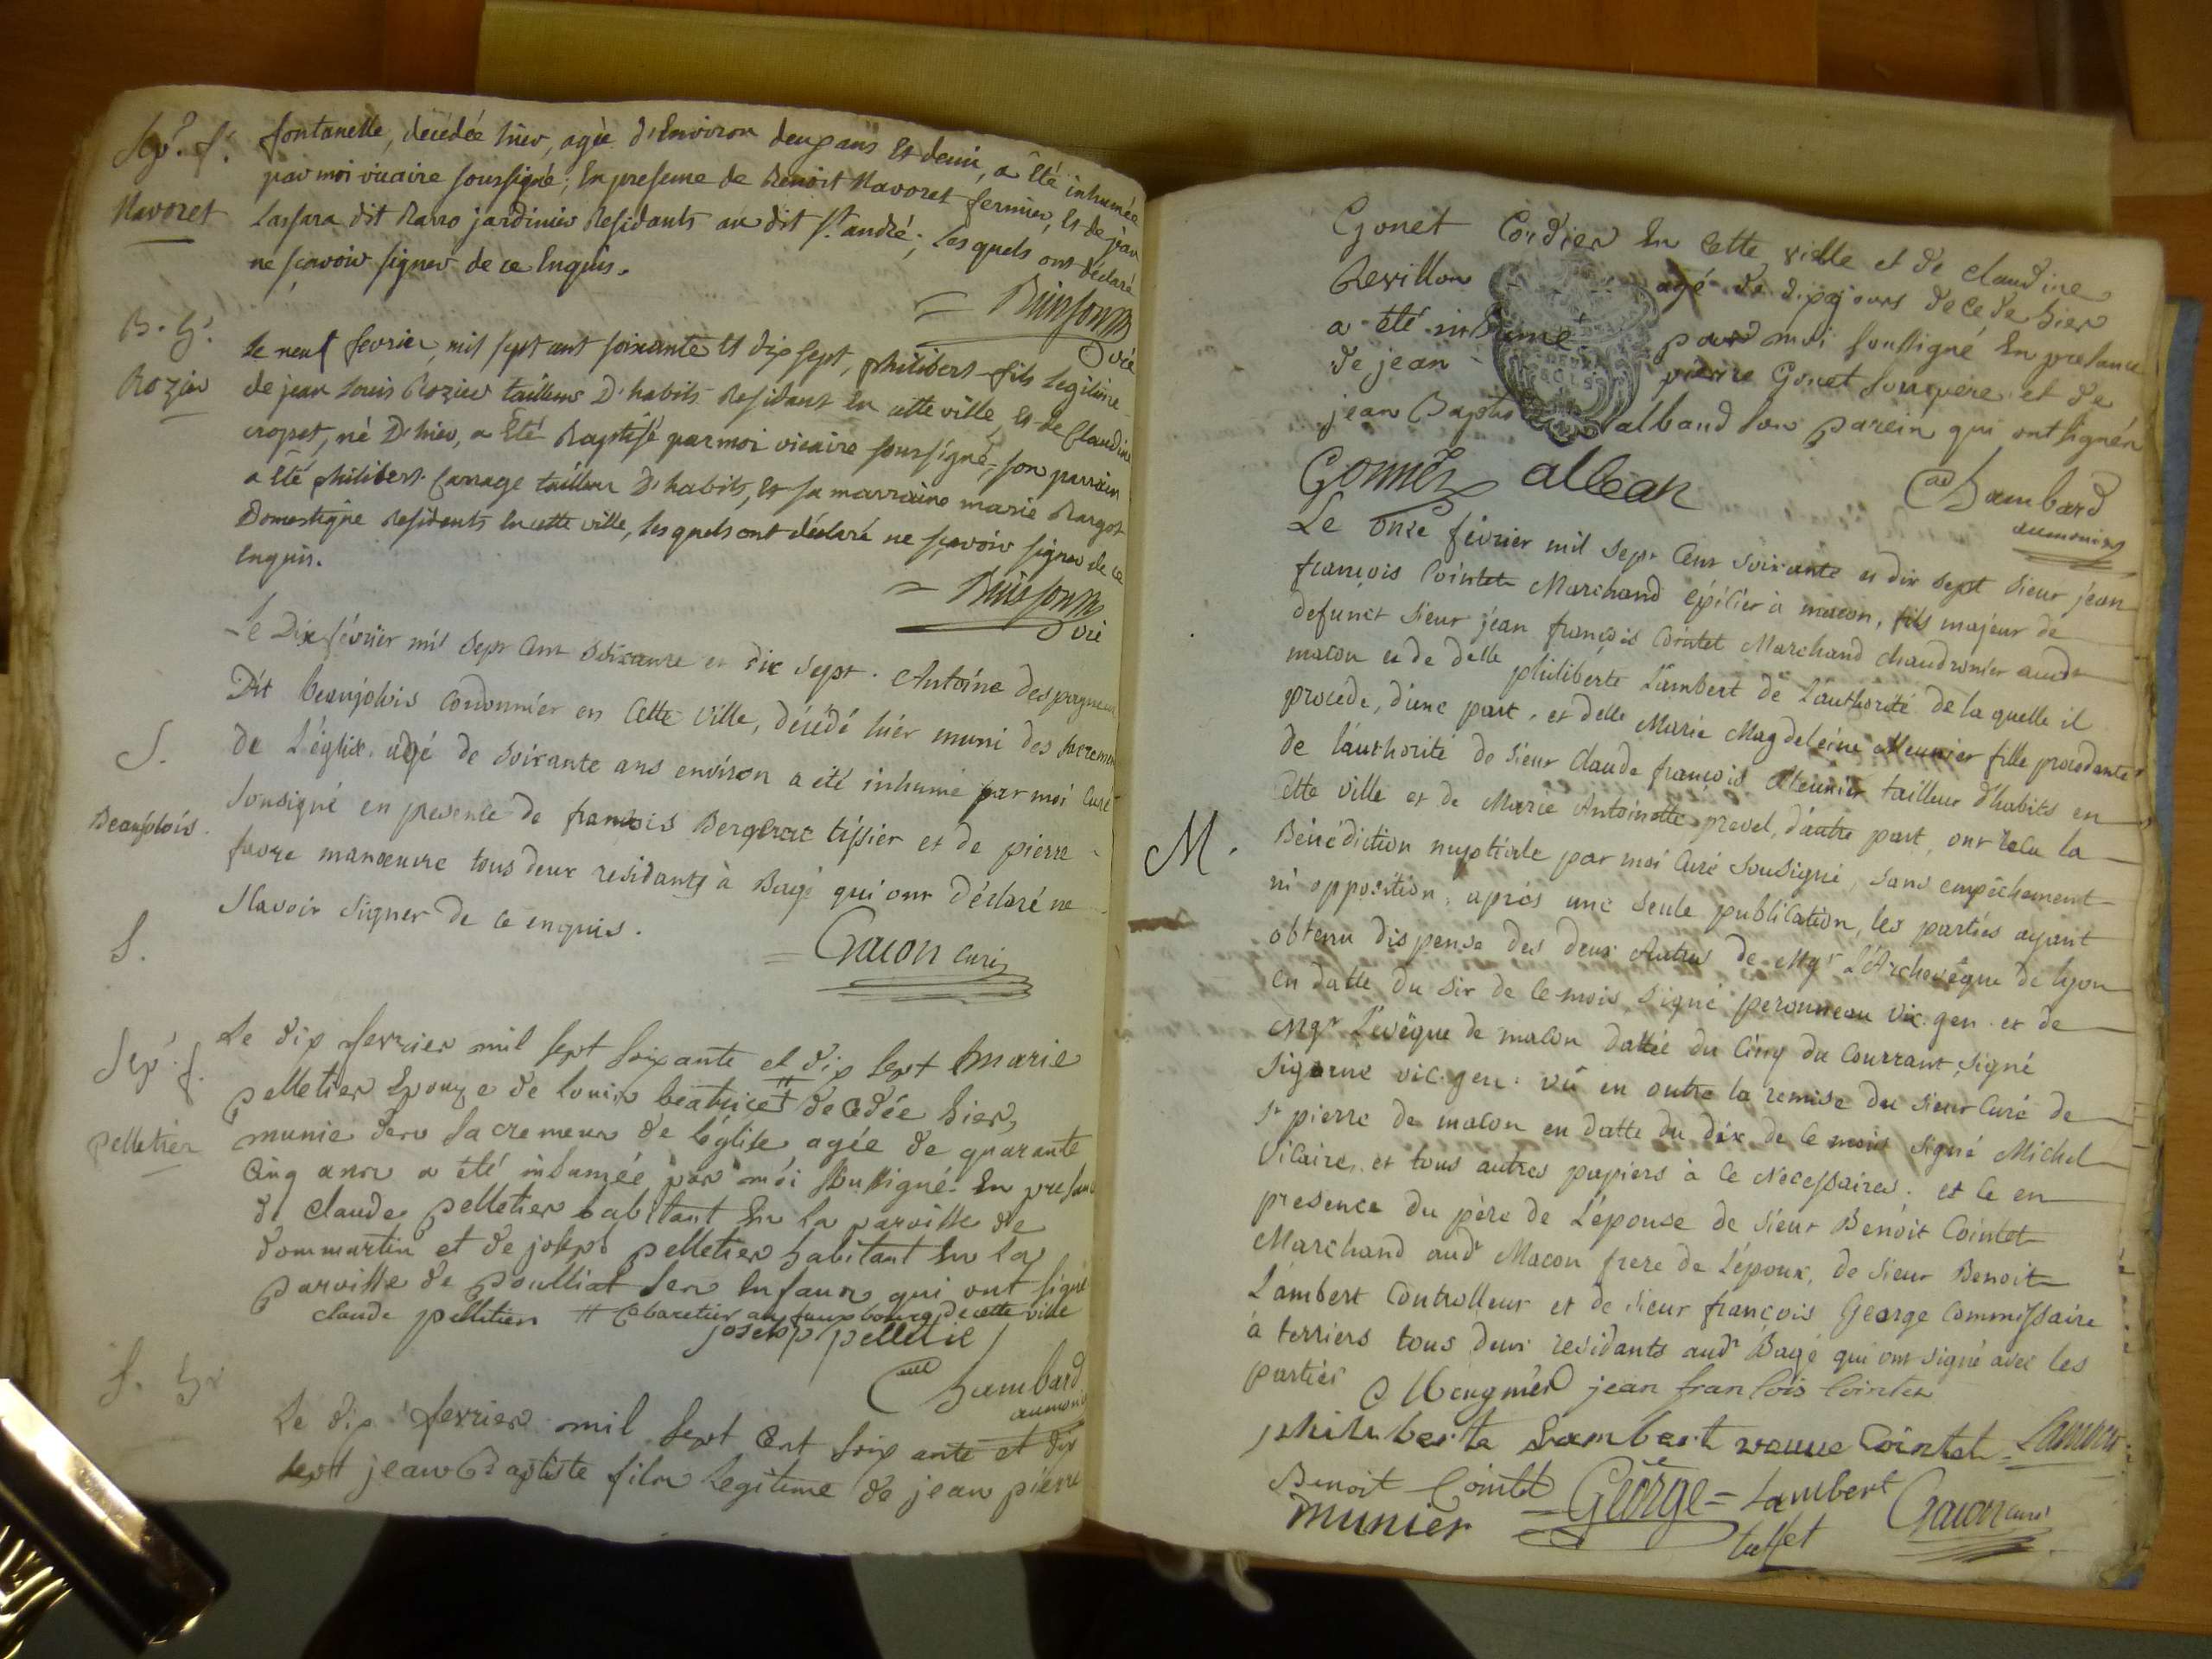 Sep.r f.
Navoret
fontanelle, décédée hier, agée d'Environ deux ans Et demi, a Eté inhumée
par moi vicaire soussigné; En presence de Benoit Navoret fermier, Et de jean
Lassara dit Barro jardinier Residants au dit St. andré; lesquels ont déclaré
ne sçavoir signer de ce Enquis.
= Buisson
vic
B. g.
Rozier
Le neuf fevrier mil sept cent soixante Et dix sept, philibert fils legitime
de jean Louis Rozier tailleur D'habits Residant En cette ville, Et de Claudine
cropet, né D'hier, a Eté Baptisé par moi vicaire soussigné; son parrain
a Eté philibert Carrage tailleur D'habits, Et sa marraine marie Bargot
Domestique Residents En cette ville, lesquels ont déclaré ne sçavoir signer de ce
Enquis.
= Buisson
vic
S.
Beaujolois.
Le Dix février mil sept Cent soixante et dix sept. Antoine
Dit beaujolois Cordonnier en Cette ville, décédé hiér muni des sacremens
de L'église, agé de soixante ans environ a été inhumé par moi Curé
sousigné en presence de françois Bergerac tissier et de pierre
favre manoeuvre tous deux residants à Bagé qui ont Déclaré ne
slavoir signer de ce enquis.
= Gacon Curé
S.
Sep.r f.
pelletier
Le dix fevrier mil sept soixante et dix sept marie
pelletier Epouze de louis beatrice # decedée hier,
munie des sacremens de l'église, agée de quarante
Cinq ans a été inhumée par moi soussigné En presance
de claude pelletier habitant En la paroisse de
dommartin et de joseph pelletier habitant En la
paroisse de poulliat ses Enfans qui ont signé
claude pelletier # Cabaretier au fauxbourg de cette ville
joseph pelletie
Chambard
aumonier
S. g.
Le dix fevrier mil sept Cent soixante et dix
sept jean Baptiste fils Legitime de jean pierre
Gonet Cordier En Cette ville et de claudine
Revillon agé de dix jours decede hier
a été inhumé par moi soussigné En presance
de jean pierre Gonet son pere et de
jean Baptiste alband son parein qui ont signés
Gonnet alban
Chambard
aumonier
M.
Le onze février mil sept Cent soixante et dix sept sieur jéan
françois Cointet Marchand épicier à macon, fils majeur de
defunct sieur jéan françois Cointet Marchand chaudronier audt
macon et de delle philiberte Lambert de L'authorité de la quelle il
procede, d'une part, et delle Marie Magdeleine Meunier fille procedante
de l'authorité de sieur Claude françois Meunier tailleur d'habits en
Cette ville et de Marie Antoinette prevel, d'autre part, ont recu la
Bénédiction nuptiale par moi Curé sousigné, sans empêchement
ni opposition, aprés une seule publication, les parties ayant
obtenu dispense des deux Autres de Mgr L'Archevêque de lyon
en datte du six de ce mois, signé peronneau vic. gen. et de
Mgr L'evêque de macon dattée du Cinq du Courrant, signé
Sigorne vic. gen. vû en outre la remise du sieur Curé de
St pierre de macon en datte du dix de ce mois signé Michel
vicaire, et tous autres papiers à ce Necessaires. et ce en
presence du père de L'épouse de sieur Benoit Cointet
Marchand audt Macon frere de L'époux, de sieur Benoit
Lambert Controlleur et de sieur françois George Commissaire
à terriers tous deux residants audt Bagé qui ont signé avec les
partiés
Meugnier jean francois Cointet
philiberte Lambert veuve Cointet
Benoit Cointet = George = Lambert Gacon curé
munier